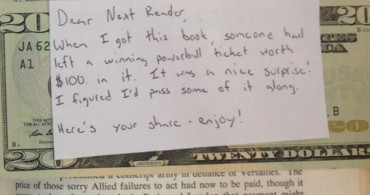 20
20
JA 62
A1
Dear Next Reader,
When I got this book, someone had
left a winning powerball ticket worth
$100. in it. It was a nice surprise!
I figured I'd pass some of it along.
Here's your share - enjoy!
B
20
B.
JACKSON
TWENTY DOLLARS
a conscript army in defiance of Versailles. The
price of those sorry Allied failures to act had now to be paid, though it